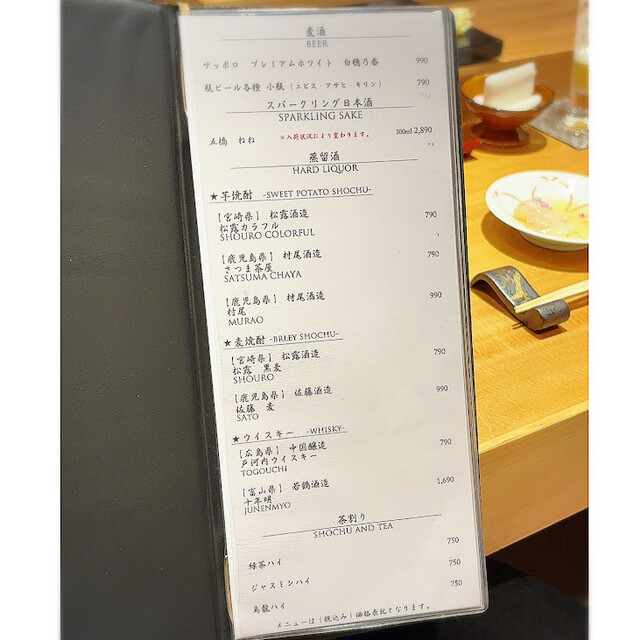 麦酒
BEER
サッポロ プレミアムホワイト 白穂乃香 990
瓶ビール各種 小瓶 (エビス・アサヒ・キリン) 790
スパークリング日本酒
SPARKLING SAKE
五橋 ねね ※入荷状況により変わります。 300ml 2,890
蒸留酒
HARD LIQUOR
★芋焼酎 -SWEET POTATO SHOCHU-
【宮崎県】 松露酒造 790
松露カラフル
SHOURO COLORFUL
【鹿児島県】 村尾酒造 790
さつま茶屋
SATSUMA CHAYA
【鹿児島県】 村尾酒造 990
村尾
MURAO
★麦焼酎 -BRLEY SHOCHU-
【宮崎県】 松露酒造 790
松露 黒麦
SHOURO
【鹿児島県】 佐藤酒造 990
佐藤 麦
SATO
★ウイスキー -WHISKY-
【広島県】 中国醸造 790
戸河内ウイスキー
TOGOUCHI
【富山県】 若鶴酒造 1,690
十年明
JUNENMYO
茶割り
SHOCHU AND TEA
緑茶ハイ 750
ジャスミンハイ 750
烏龍ハイ 750
メニューは(税込み)価格表記となります。